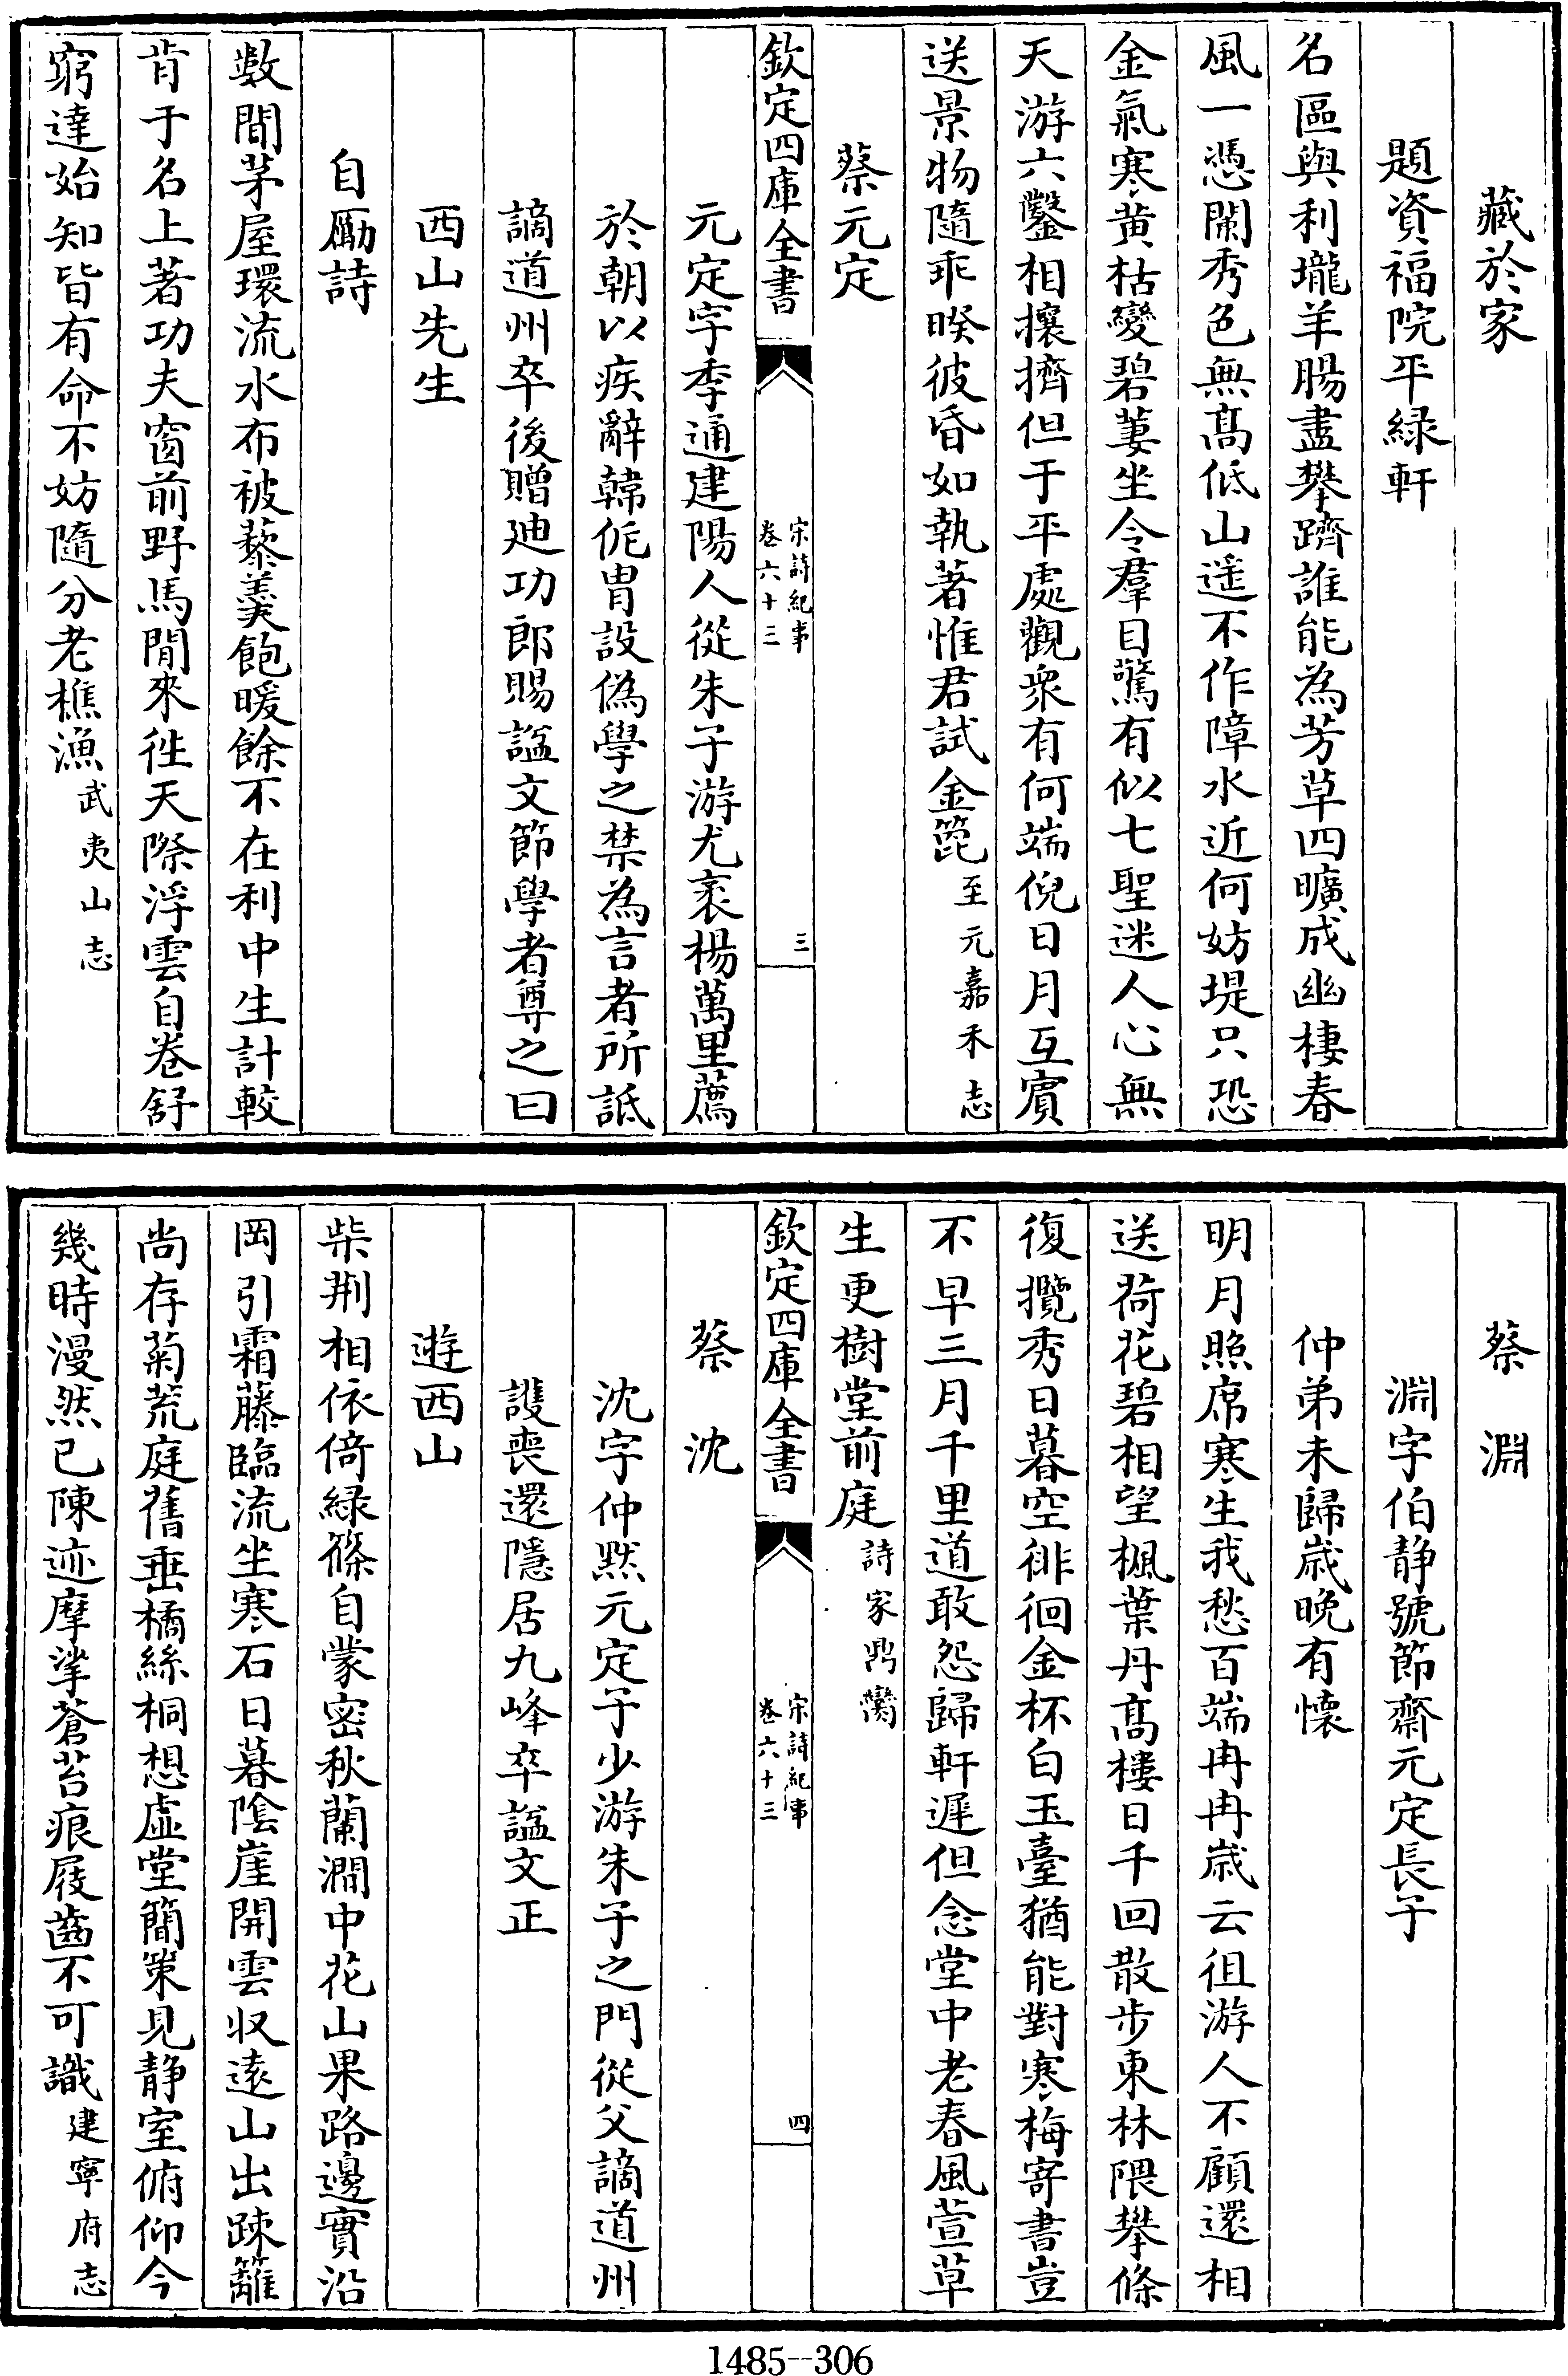 藏於家
題資福院平緑軒
名區與利壠羊腸盡攀躋誰能為芳草四曠成幽棲春
風一憑闌秀色無髙低山遥不作障水近何妨堤只恐
金氣寒黄枯變碧萋坐令羣目驚有似七聖迷人心無
天游六鑿相攘擠但于平處觀衆有何端倪日月互賓
送景物隨乖暌彼昏如執著惟君試金箆至元嘉禾志
蔡元定
欽定四庫全書
宋詩紀事
卷六十三
三
元定字季通建陽人從朱子游尤袤楊萬里薦
於朝以疾辭韓侂胄設偽學之禁為言者所詆
謫道州卒後贈廸功郎賜諡文節學者尊之曰
西山先生
自勵詩
數間茅屋環流水布被藜羮飽暖餘不在利中生計較
肯于名上著功夫窗前野馬閒來徃天際浮雲自卷舒
窮達始知皆有命不妨隨分老樵漁武夷山志
蔡淵
淵字伯静號節齋元定長子
仲弟未歸歳晚有懐
明月照席寒生我愁百端冉冉歳云徂游人不顧還相
送荷花碧相望楓葉丹髙樓日千回散步東林隈攀條
復攬秀日暮空徘徊金杯白玉臺猶能對寒梅寄書豈
不早三月千里道敢怨歸軒遲但念堂中老春風萱草
生更樹堂前庭詩家鼎臠
欽定四庫全書
宋詩紀事
卷六十三
四
蔡沈
沈字仲黙元定子少游朱子之門從父謫道州
護喪還隱居九峰卒諡文正
遊西山
柴荆相依倚緑篠自蒙密秋蘭澗中花山果路邊實沿
岡引霜藤臨流坐寒石日暮陰崖開雲収逺山出疎籬
尚存菊荒庭舊垂橘絲桐想虚堂簡策見静室俯仰今
幾時漫然已陳迹摩挲蒼苔痕屐齒不可識建寧府志
1485--306